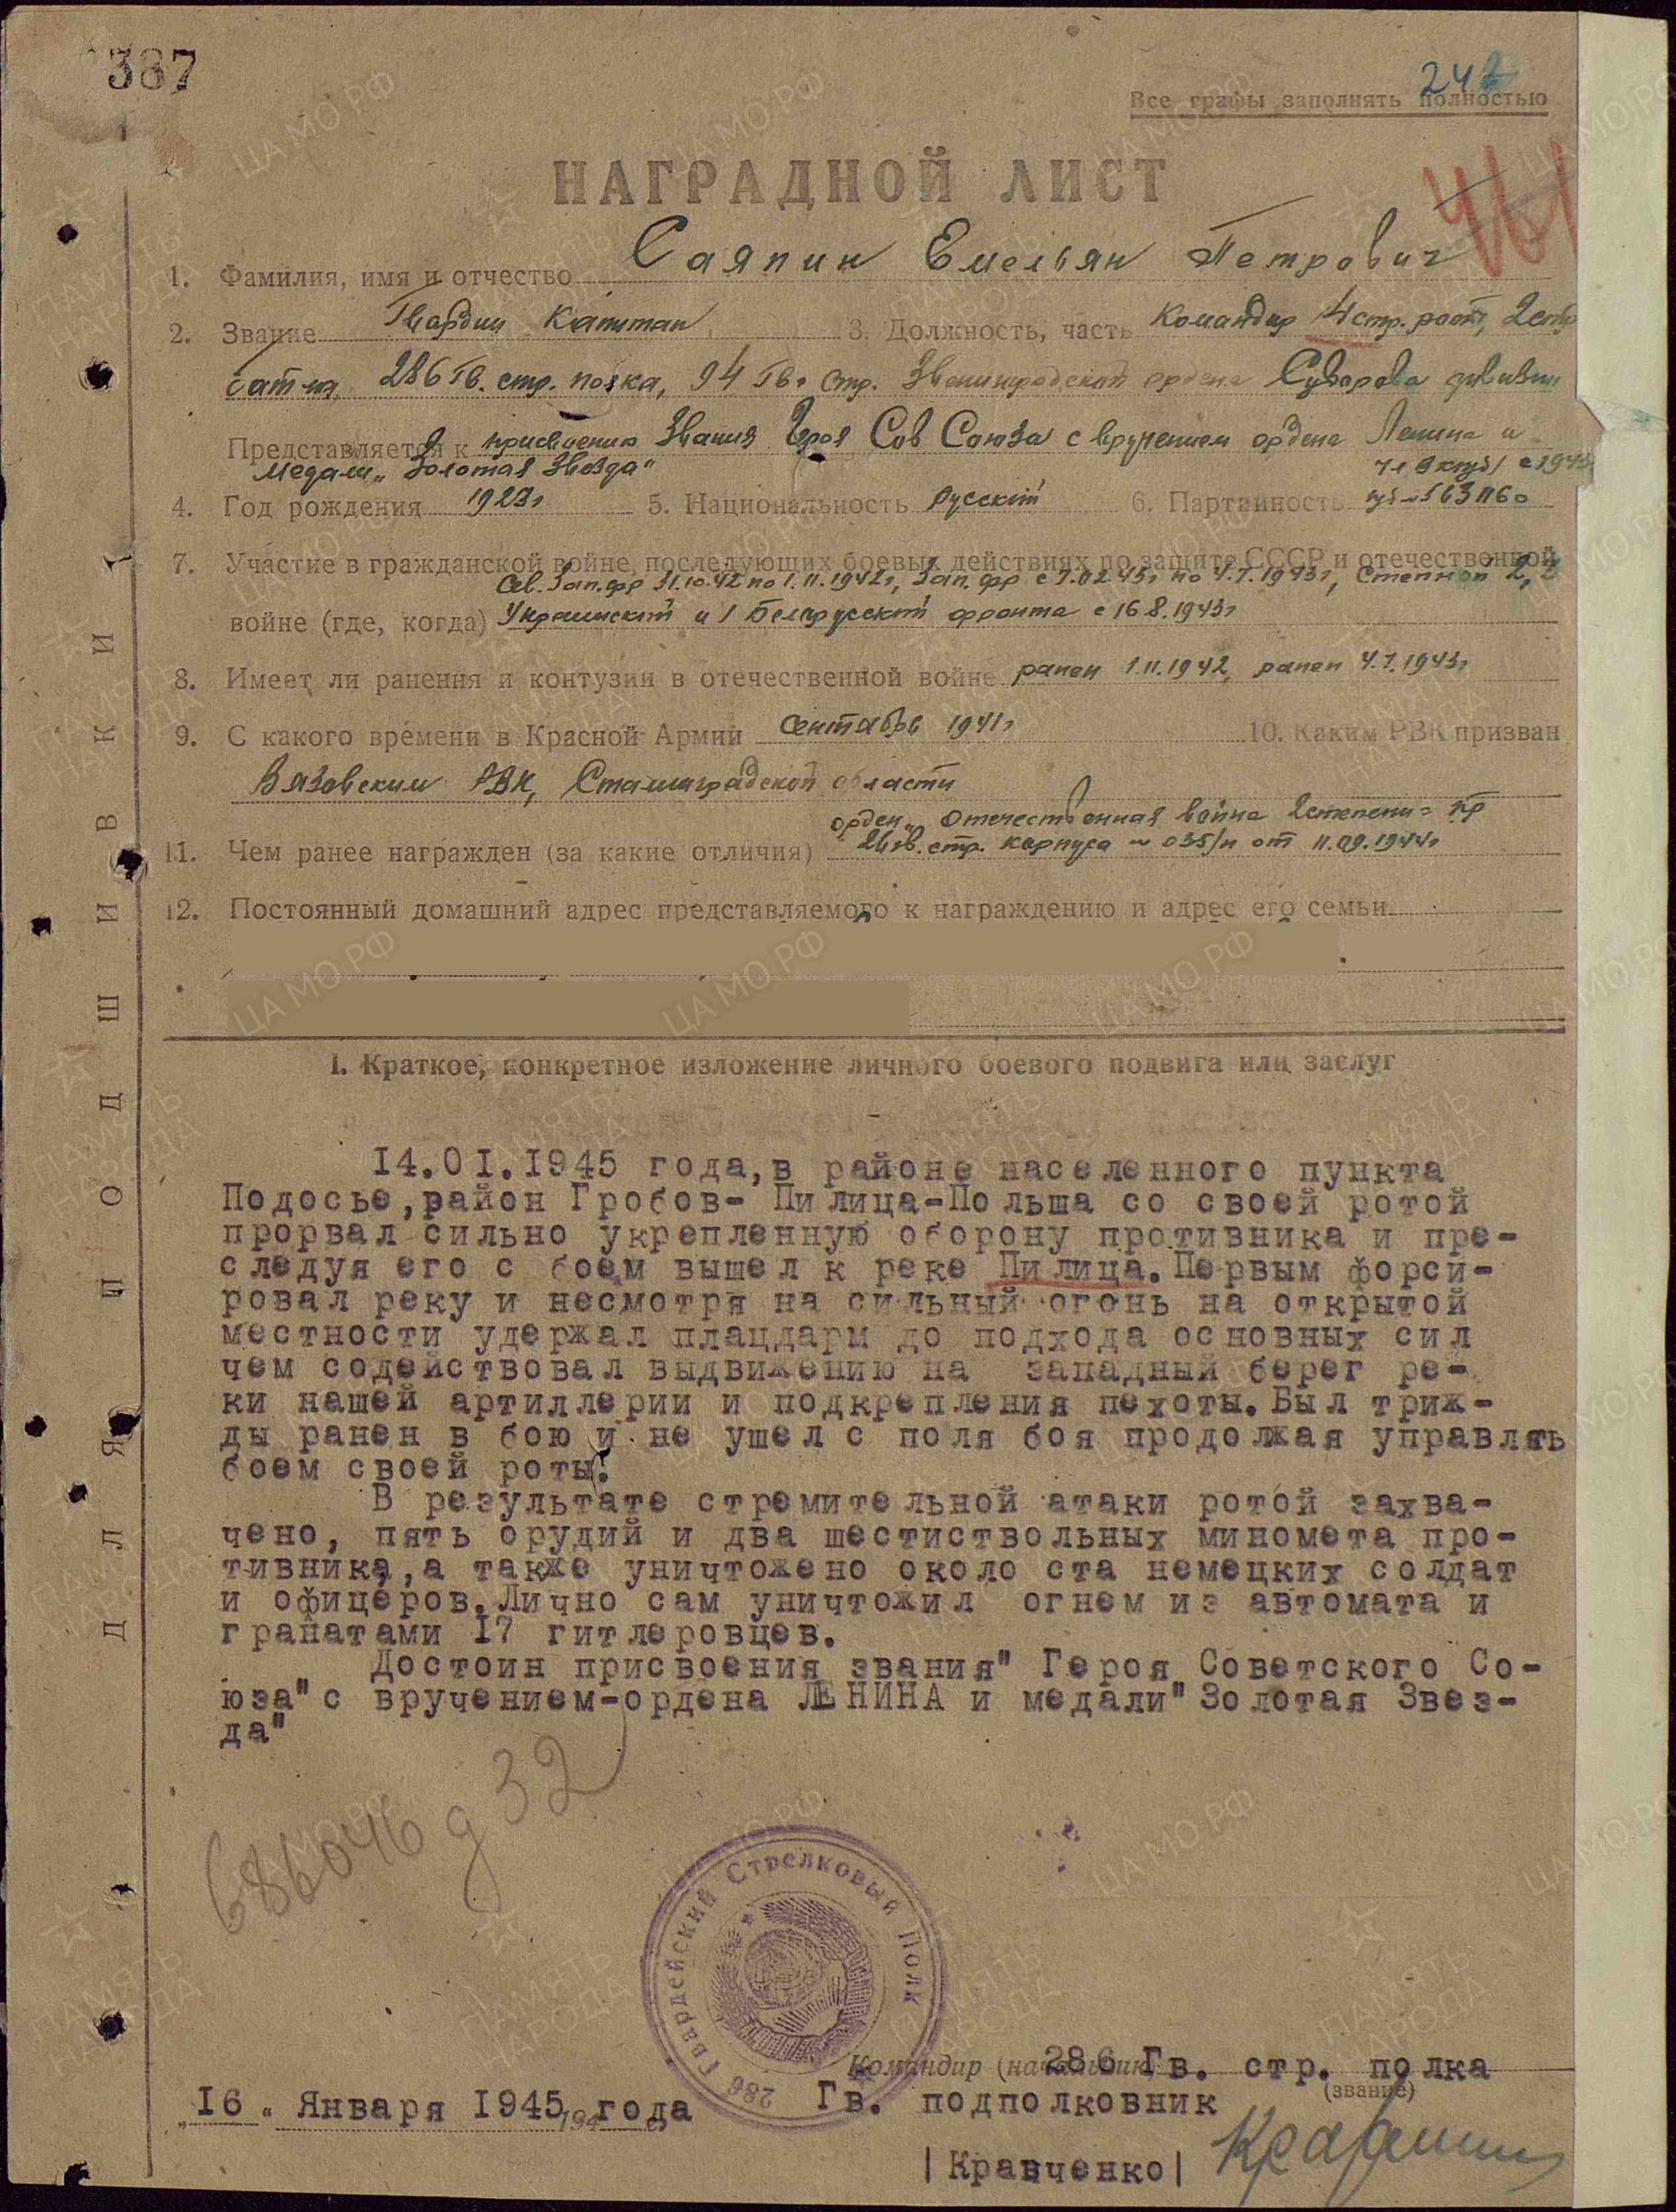 387
242
Все графы заполнять полностью
НАГРАДНОЙ ЛИСТ
461
1. Фамилия, имя и отчество Саяпин Емельян Петрович
2. Звание Гвардии Капитан 3. Должность, часть Командир 4 стр. роты, 2 стр
бат-на, 286 Гв. стр. полка, 94 Гв. Стр. Звенигородской ордена Суворова дивизии
Представляется к присвоению Звания Героя Сов Союза с вручением ордена Ленина и
медали „Золотая Звезда"
с 1943
4. Год рождения 1923г 5. Национальность русский 6. Партийность
7. Участие в гражданской войне, последующих боевых действиях по защите СССР и отечественной
Сев. Зап. фр 31.10.42 по 1.11.1942г, Зап. фр с 7.02.43г по 4.7.1943г, Степной 2,3
войне (где, когда) Украинский и 1 Белорусский фронта с 16.8.1943г
8. Имеет ли ранения и контузии в отечественной войне ранен 1.11.1942, ранен 4.7.1943г
9. С какого времени в Красной Армии Сентябрь 1941г 10. Каким РВК призван
Вязовским РВК, Сталинградской области
орден „Отечественная война 2 степени" пр
11. Чем ранее награжден (за какие отличия) 26 гв. стр. корпуса № 035/н от 11.09.1944г
12. Постоянный домашний адрес представляемого к награждению и адрес его семьи
I. Краткое, конкретное изложение личного боевого подвига или заслуг
14.01.1945 года,в районе населенного пункта
Подосье,район Гробов- Пилица-Польша со своей ротой
прорвал сильно укрепленную оборону противника и пре-
следуя его с боем вышел к реке Пилица.Первым форси-
ровал реку и несмотря на сильный огонь на открытой
местности удержал плацдарм до подхода основных сил
чем содействовал выдвижению на западный берег ре-
ки нашей артиллерии и подкрепления пехоты.Был триж-
ды ранен в бою и не ушел с поля боя продолжая управлять
боем своей роты.
В результате стремительной атаки ротой захва-
чено, пять орудий и два шестиствольных миномета про-
тивника,а также уничтожено около ста немецких солдат
и офицеров.Лично сам уничтожил огнем из автомата и
гранатами 17 гитлеровцев.
Достоин присвоения звания" Героя Советского Со-
юза"с вручением-ордена ЛЕНИНА и медали"Золотая Звез-
да"
686046 д 32
286 Гвардейский Стрелковый Полк
Командир (начальник) 286 Гв. стр. полка
(звание)
„16" Января 1945 194 года
Гв. подполковник
|Кравченко|
ДЛЯ ПОДШИВКИ
ЦА МО РФ
ПАМЯТЬ НАРОДА